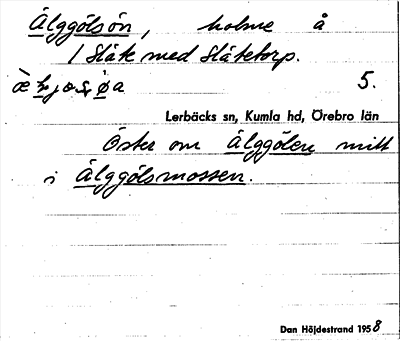 Älggölsön, holme å
1 Slåte med Slåtetorp.
5.
Lerbäcks sn, Kumla hd, Örebro län
Öster om Älggölen mitt
i Älggölsmossen.
Dan Höjdestrand 1958